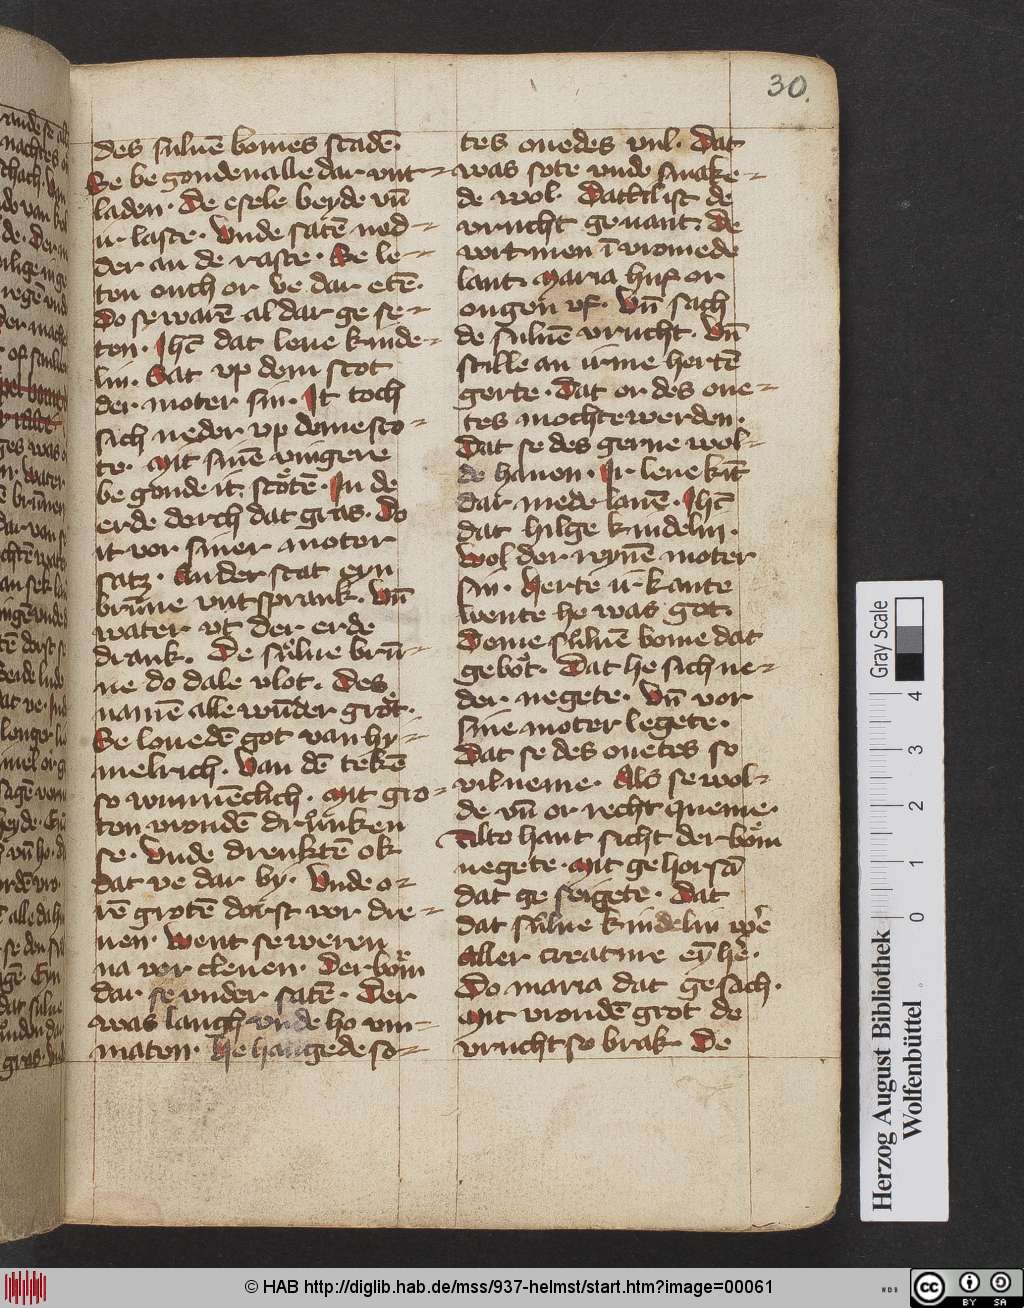 30.
des suluē bomes scadē.
Se be gonden alle dar vnt
laden. De esele beyde vn̄
ir laste. Vnde satē ned
der an de raste. Se le
ten ouch or ve dar etē.
Do sy warē al dar ge se
ten. Ihc̄ dat leue kinde
lin. Sat vp dem scot
der moter sin. It toch
sich neder vp deme sco
te. Mit sinē vingere
be gonde it. scotē. In de
erde dorch dat gras. Do
it vor siner moter
satz. An der stat eyn
brūne vntsprank. Vn̄
water vt der erde
drank. De sulue brū
ne do dale vlot. Des
namē alle wūder grot.
Se louedē got van hy
melrich. Van dē tekē
so wunnēclich. Mit gro
ten vrondē drunken
se. Vnde drenktē ok
dat ve dar by. Vnde o
rē grotē dorst vor dre
uen. Went se weren
na vor cleuen. Der bom
dar se vnder satē. Der
was lanch vnde ho vm
maten. He hangede so
tes ouedes vul. Dat
was sote vnde smake
de wol. Dactilist de
vrucht genant. De
wit men ī vromede
lant. Maria huf or
ougen vf. Vn̄ sach
de suluē vrucht. Vn̄
stille an irme hertē
gerte. Dat or des oue
tes mochte werden.
Dat se des gerne wol
de hauen. Ir leue kīt
dar mede lauē. Ihc̄
dat hilge kindelin.
Wol der reynē moter
sin. Herte ir kante
wente he was got.
Deme suluē bome dat
gebot. Dat he sich ne
der negete. Vn̄ vor
sine moter legete.
Dat se des ouetes so
vil neme. Als se wol
de vn̄ or recht queme.
Alto hant sicht der bom
negete. Mit gehorsā
dat ge seigete. Dat
dat sulue kindelin wē
aller creature eȳ hē.
Do maria dat gesach.
Mit vrondē grot de
vrucht so brak. De
Herzog August Bibliothek
Wolfenbüttel
Gray Scale
0 1 2 3 4
© HAB http://diglib.hab.de/mss/937-helmst/start.htm?image=00061
WDB
cc BY SA